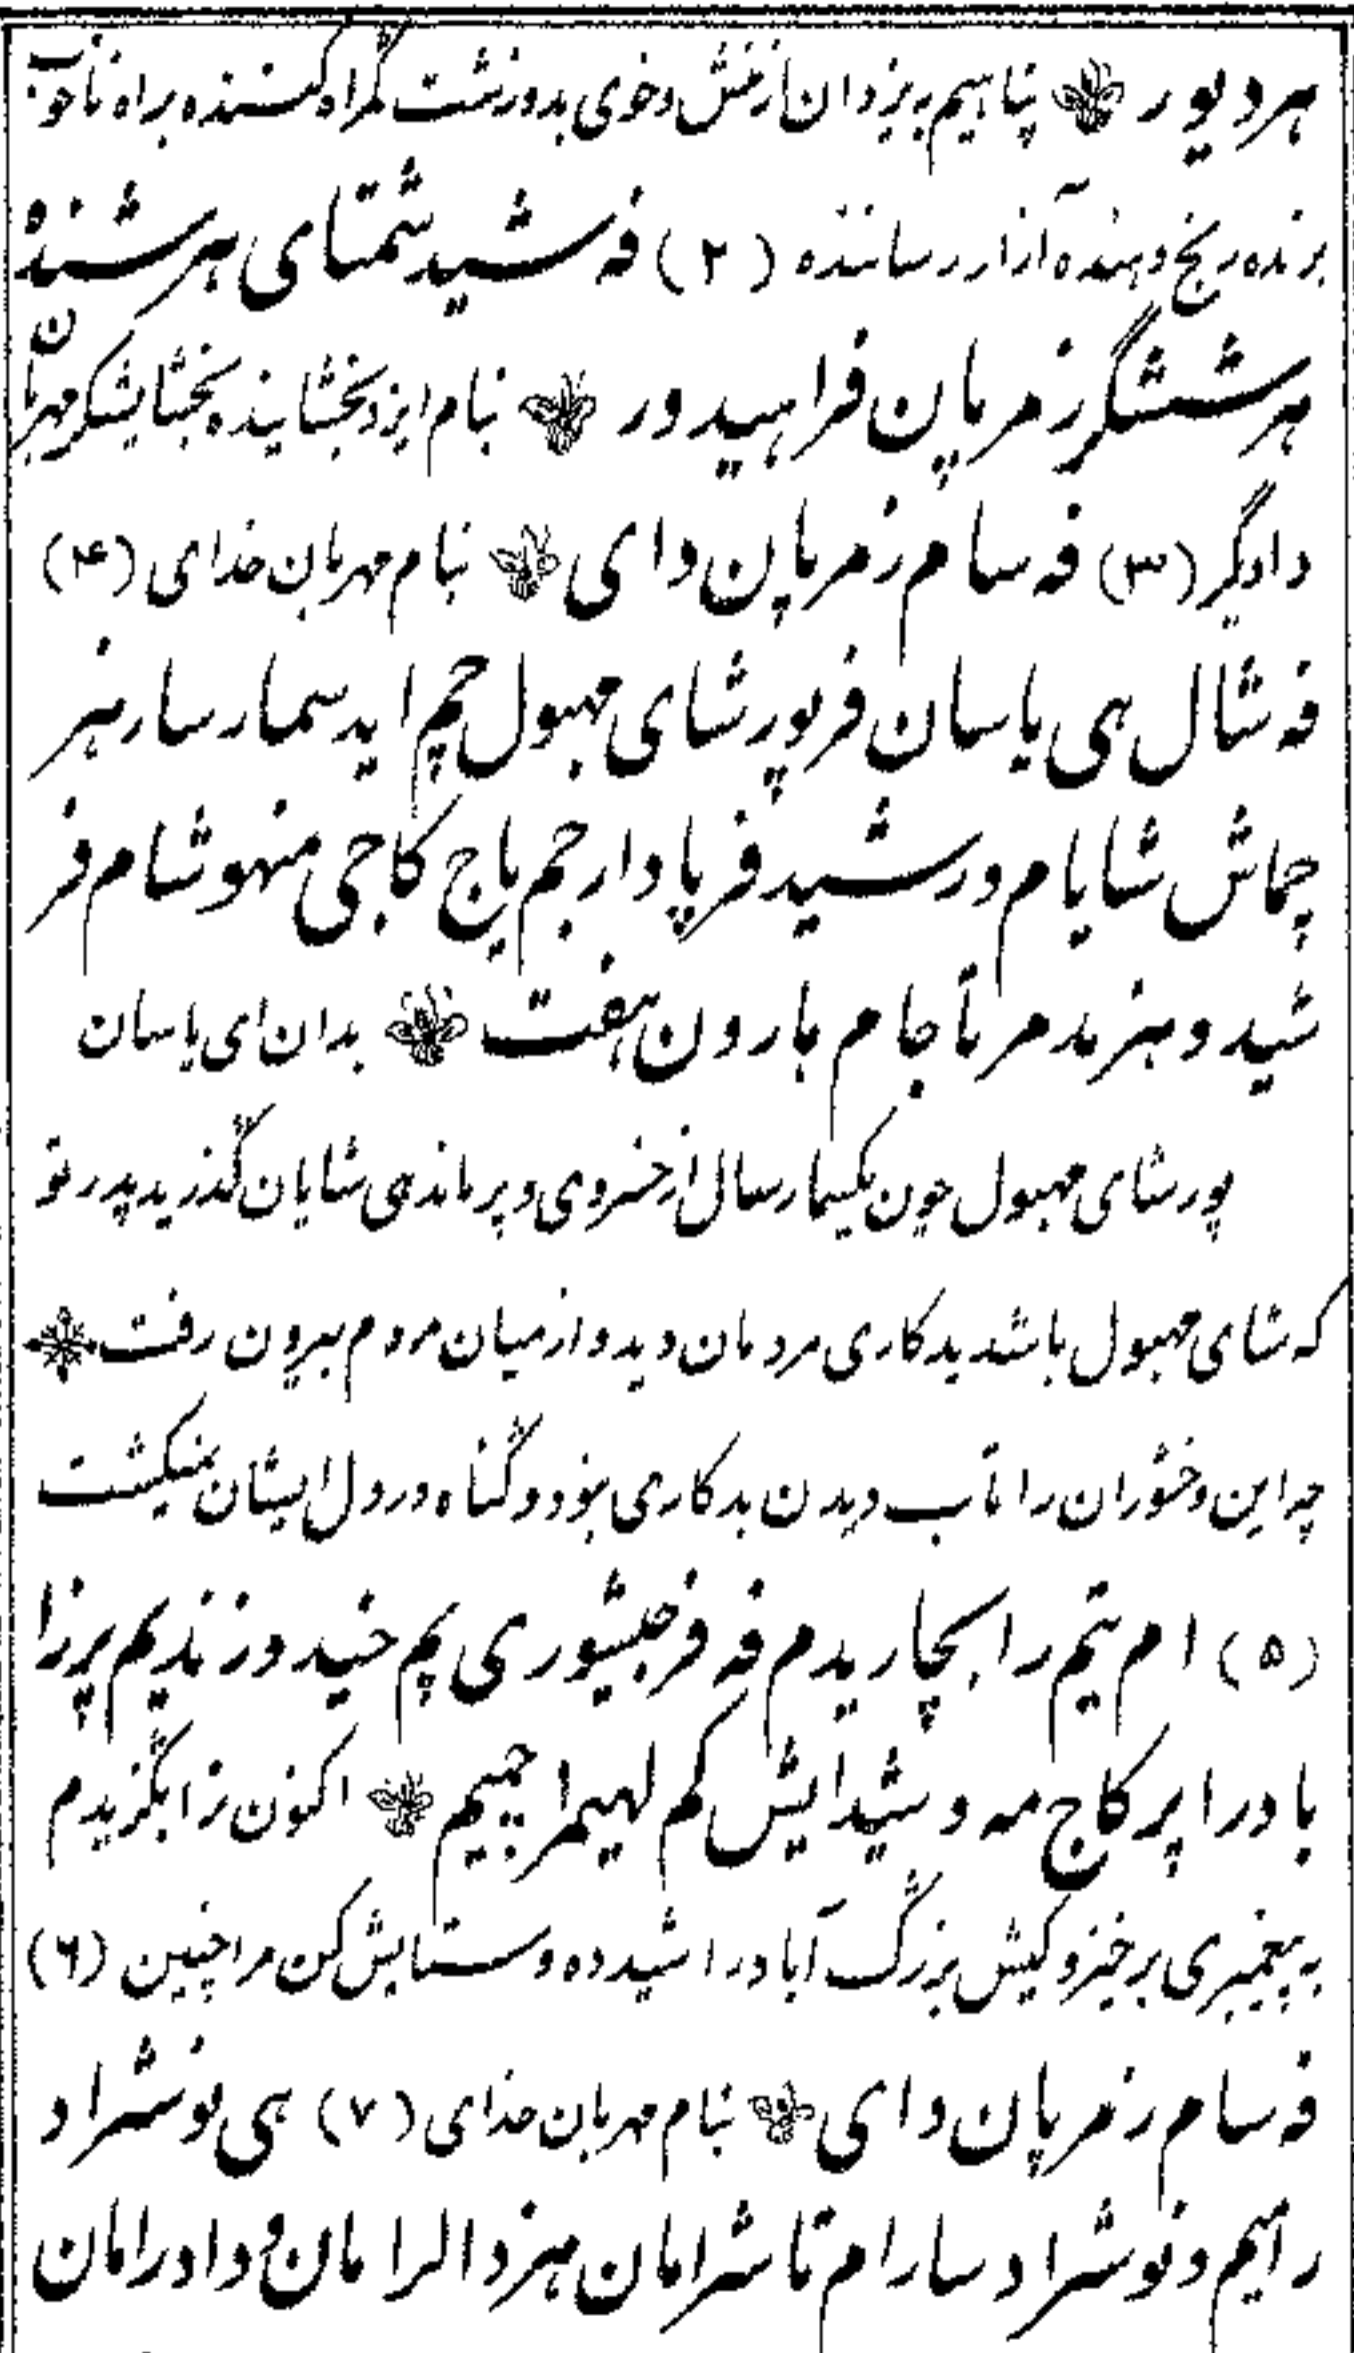 هر دیور پناهیم به یزدان از منش و خوی بد و زشت گمراه کننده براه ناخوب
برنده رنج دهنده آزار رساننده (۲) فه شید شمتای هر شنده
هر ششگر زمرپان فراهیدور بنام ایزد بخشاینده بخشایشگر مهربان
دادگر (۳) فه سام زمرپان دای بنام مهربان خدای (۴)
فه شال هی یاسان فرپور شای مهبول چم اید سمار سار هنر
چماش شایام ورشید فرپادار جم پاج کاجی منهوشام فر
شید و هنر مد مر تاجام هارون هفت بدان ای یاسان
پور شای مهبول چون یکسمار سال از خسروی و پرماندهی شایان گذرید پدر تو
که شای مهبول باشد بدکاری مردمان دید و از میان مردم بیرون رفت
چه این وخشوران را تاب دیدن بدکاری نبود و گناه در دل ایشان نمیگشت
(۵) ام تیم را بچاریدم فه فرجیشوری پم خید و زندیم پر زا
بادرا پر کاج مه و شیدایش کم لهیمرا چمیم اکنون ترا بگزیدم
به پیغمبری برخیز و کیش بزرگ آباد را شید ده و ستایش کن مرا چنین (۶)
فه سام زمرپان دای بنام مهربان خدای (۷) هی نوشراد
راهیم و نوشراد سارام تاشرامان هنرد الرامان و وادرامان